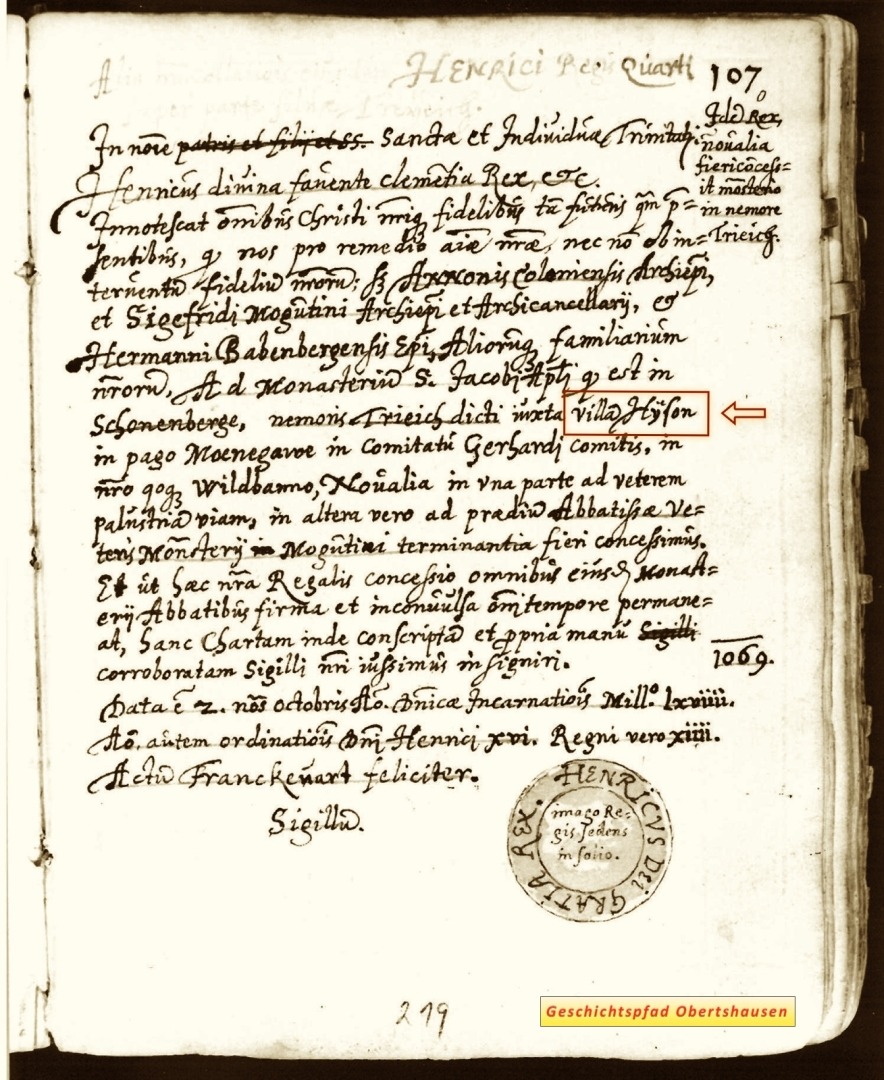 HENRICI Regis Quarti
107
Idē Rex,
novalia
fiericōcess=
it mōsterio
in nemore
Trieich.
In noīe patris et filij et SS. Sanctæ et Individuæ Trinitatis.
Henricus divina favente clemētia Rex, etc.
Innotescat omībus Christi nriq fidelibus tā futuris qm p=
sentibus, q nos pro remedio aiæ nræ, nec nō ob in=
terventū fideliū nrorū: sz Annonis Coloniensis Archiepi,
et Sigefridi Mogūtini Archiepi et Archicancellarij, &
Hermanni Babenbergensis Epi, Aliorūq familiarium
nrorum, Ad Monasteriū S. Jacobi Apli q est in
Schonenberge, nemoris Trieich dicti iuxta villā Hÿson
in pago Moenegawe in Comitatu Gerhardi comitis, in
nro qoq Wildbanno, Novalia in una parte ad veterem
palustriā viam, in altera vero ad prædiū Abbatissæ Ve=
teris Monsterij in Mogūtini terminantia fieri concessimus.
Et ut hæc nra Regalis concessio omnibus eiusd Monast=
erij Abbatibus firma et inconvulsa omi tempore permane=
at, hanc Chartam inde conscriptā et ppria manu Sigilli
corroboratam Sigilli nri iussimus insigniri.
1069.
Data ē 2. nos octobris Ao. Dnicæ Incarnatiois Millo. lxviiii.
Ao. autem ordinatiois Dni Henrici xvi. Regni vero xiiii.
Actū Franckevart feliciter.
Sigillū.
HENRICVS DEI GRATIA REX.
imago Re-
gis sedens
in solio.
219
Geschichtspfad Obertshausen